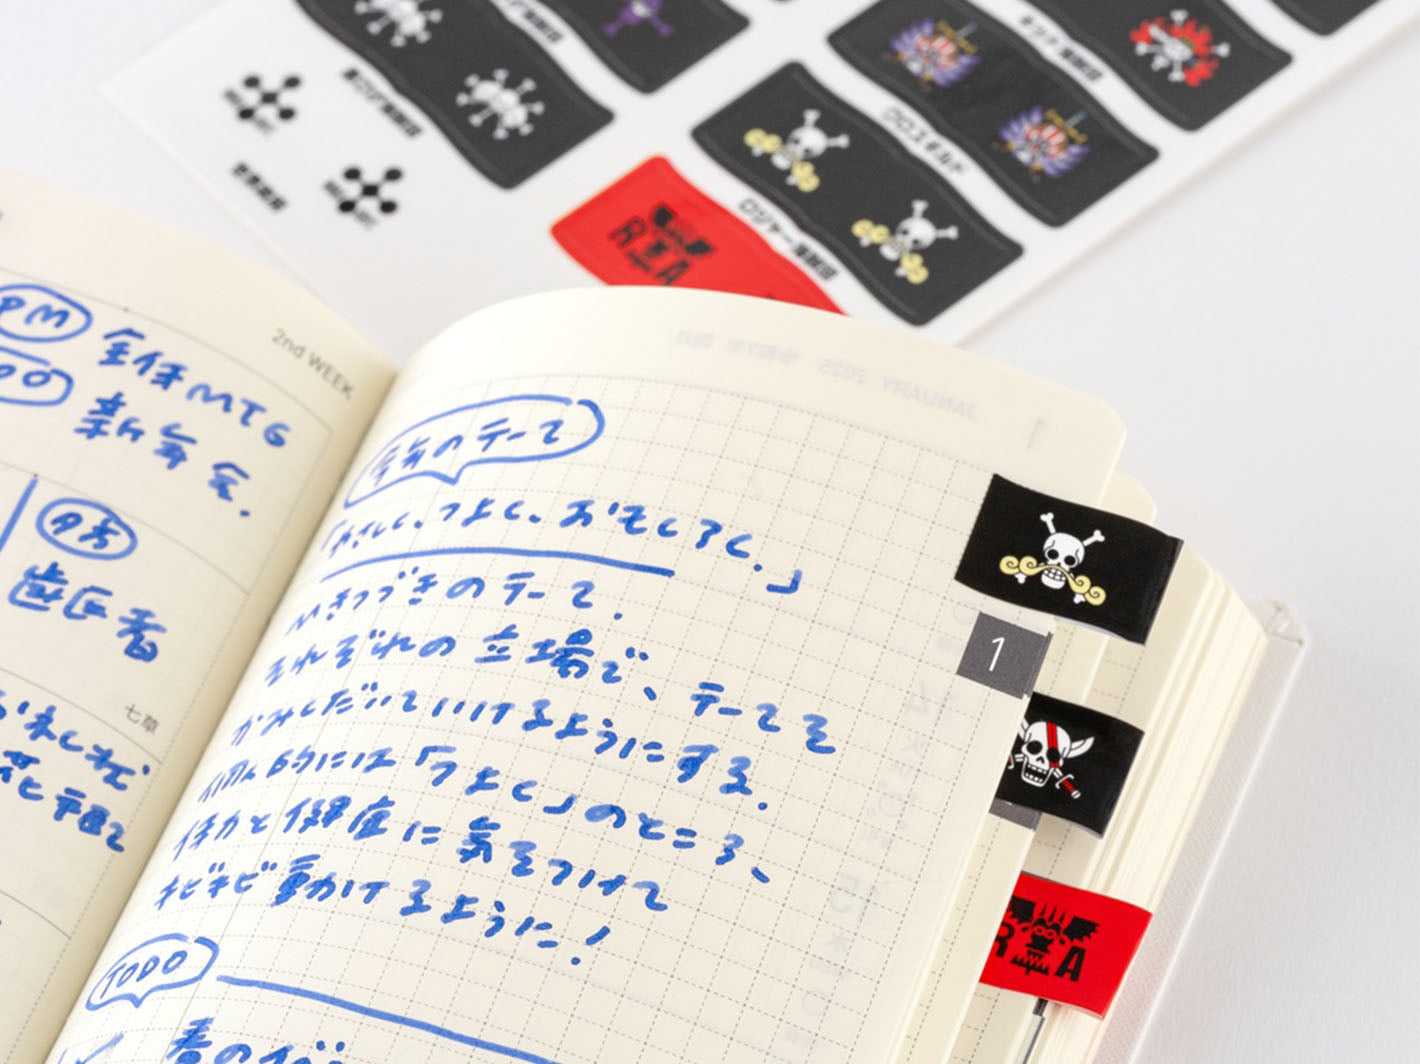 キッド海賊団
黒ひげ海賊団
クロスギルド
世界政府
ロジャー海賊団
R A
2nd WEEK
PM 全体MTG
新年会.
夕方
歯医者
七草
JANUARY 2025 令和7年 睦月
1
今年のテーマ
「やさしく、つよく、おもしろく.」
ひきつづきのテーマ.
それぞれの立場で、テーマを
かみくだいていけるようにする.
個人的には「つよく」のところ、
体力と健康に気をつけて
キビキビ動けるように!
1
R A
TODO
春の